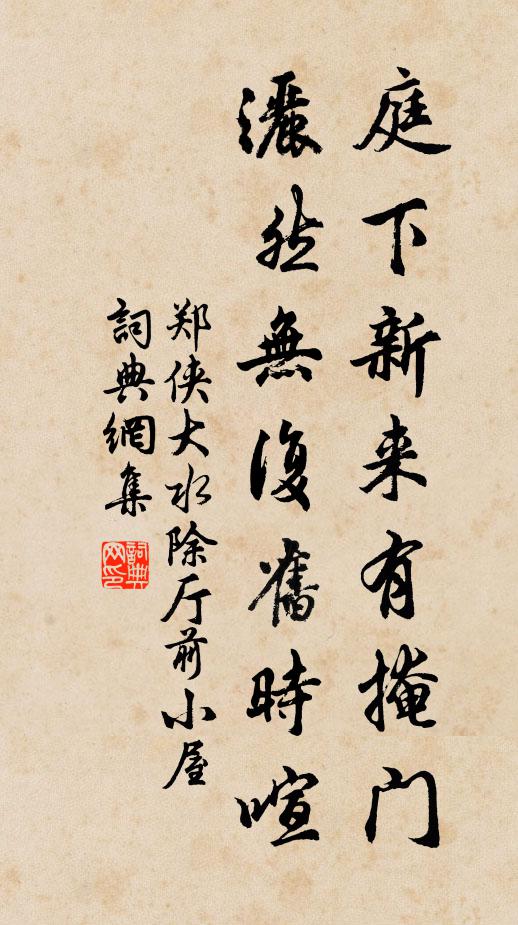 庭下新来有掩门
灑然無復舊時喧
郑侠大水除厅前小屋
詞典網集
詞典网印